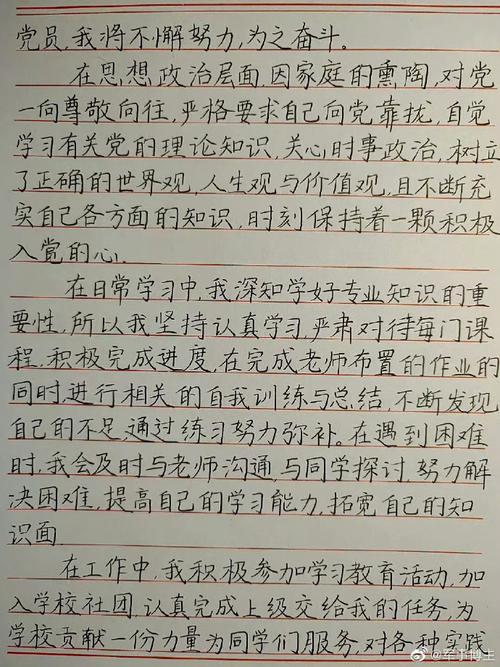 党员,我将不懈努力,为之奋斗。
在思想政治层面,因家庭的熏陶,对党
一向尊敬向往,严格要求自己向党靠拢,自觉
学习有关党的理论知识,关心时事政治,树立
了正确的世界观,人生观与价值观,且不断充
实自己各方面的知识,时刻保持着一颗积极
入党的心.
在日常学习中,我深知学好专业知识的重
要性,所以我坚持认真学习,严肃对待每门课
程,积极完成进度,在完成老师布置的作业的
同时,进行相关的自我训练与总结,不断发现
自己的不足,通过练习努力弥补。在遇到困难
时,我会及时与老师沟通,与同学探讨,努力解
决困难,提高自己的学习能力,拓宽自己的知
识面.
在工作中,我积极参加学习教育活动,加
入学校社团,认真完成上级交给我的任务,为
学校贡献一份力量为同学们服务,对各种实践